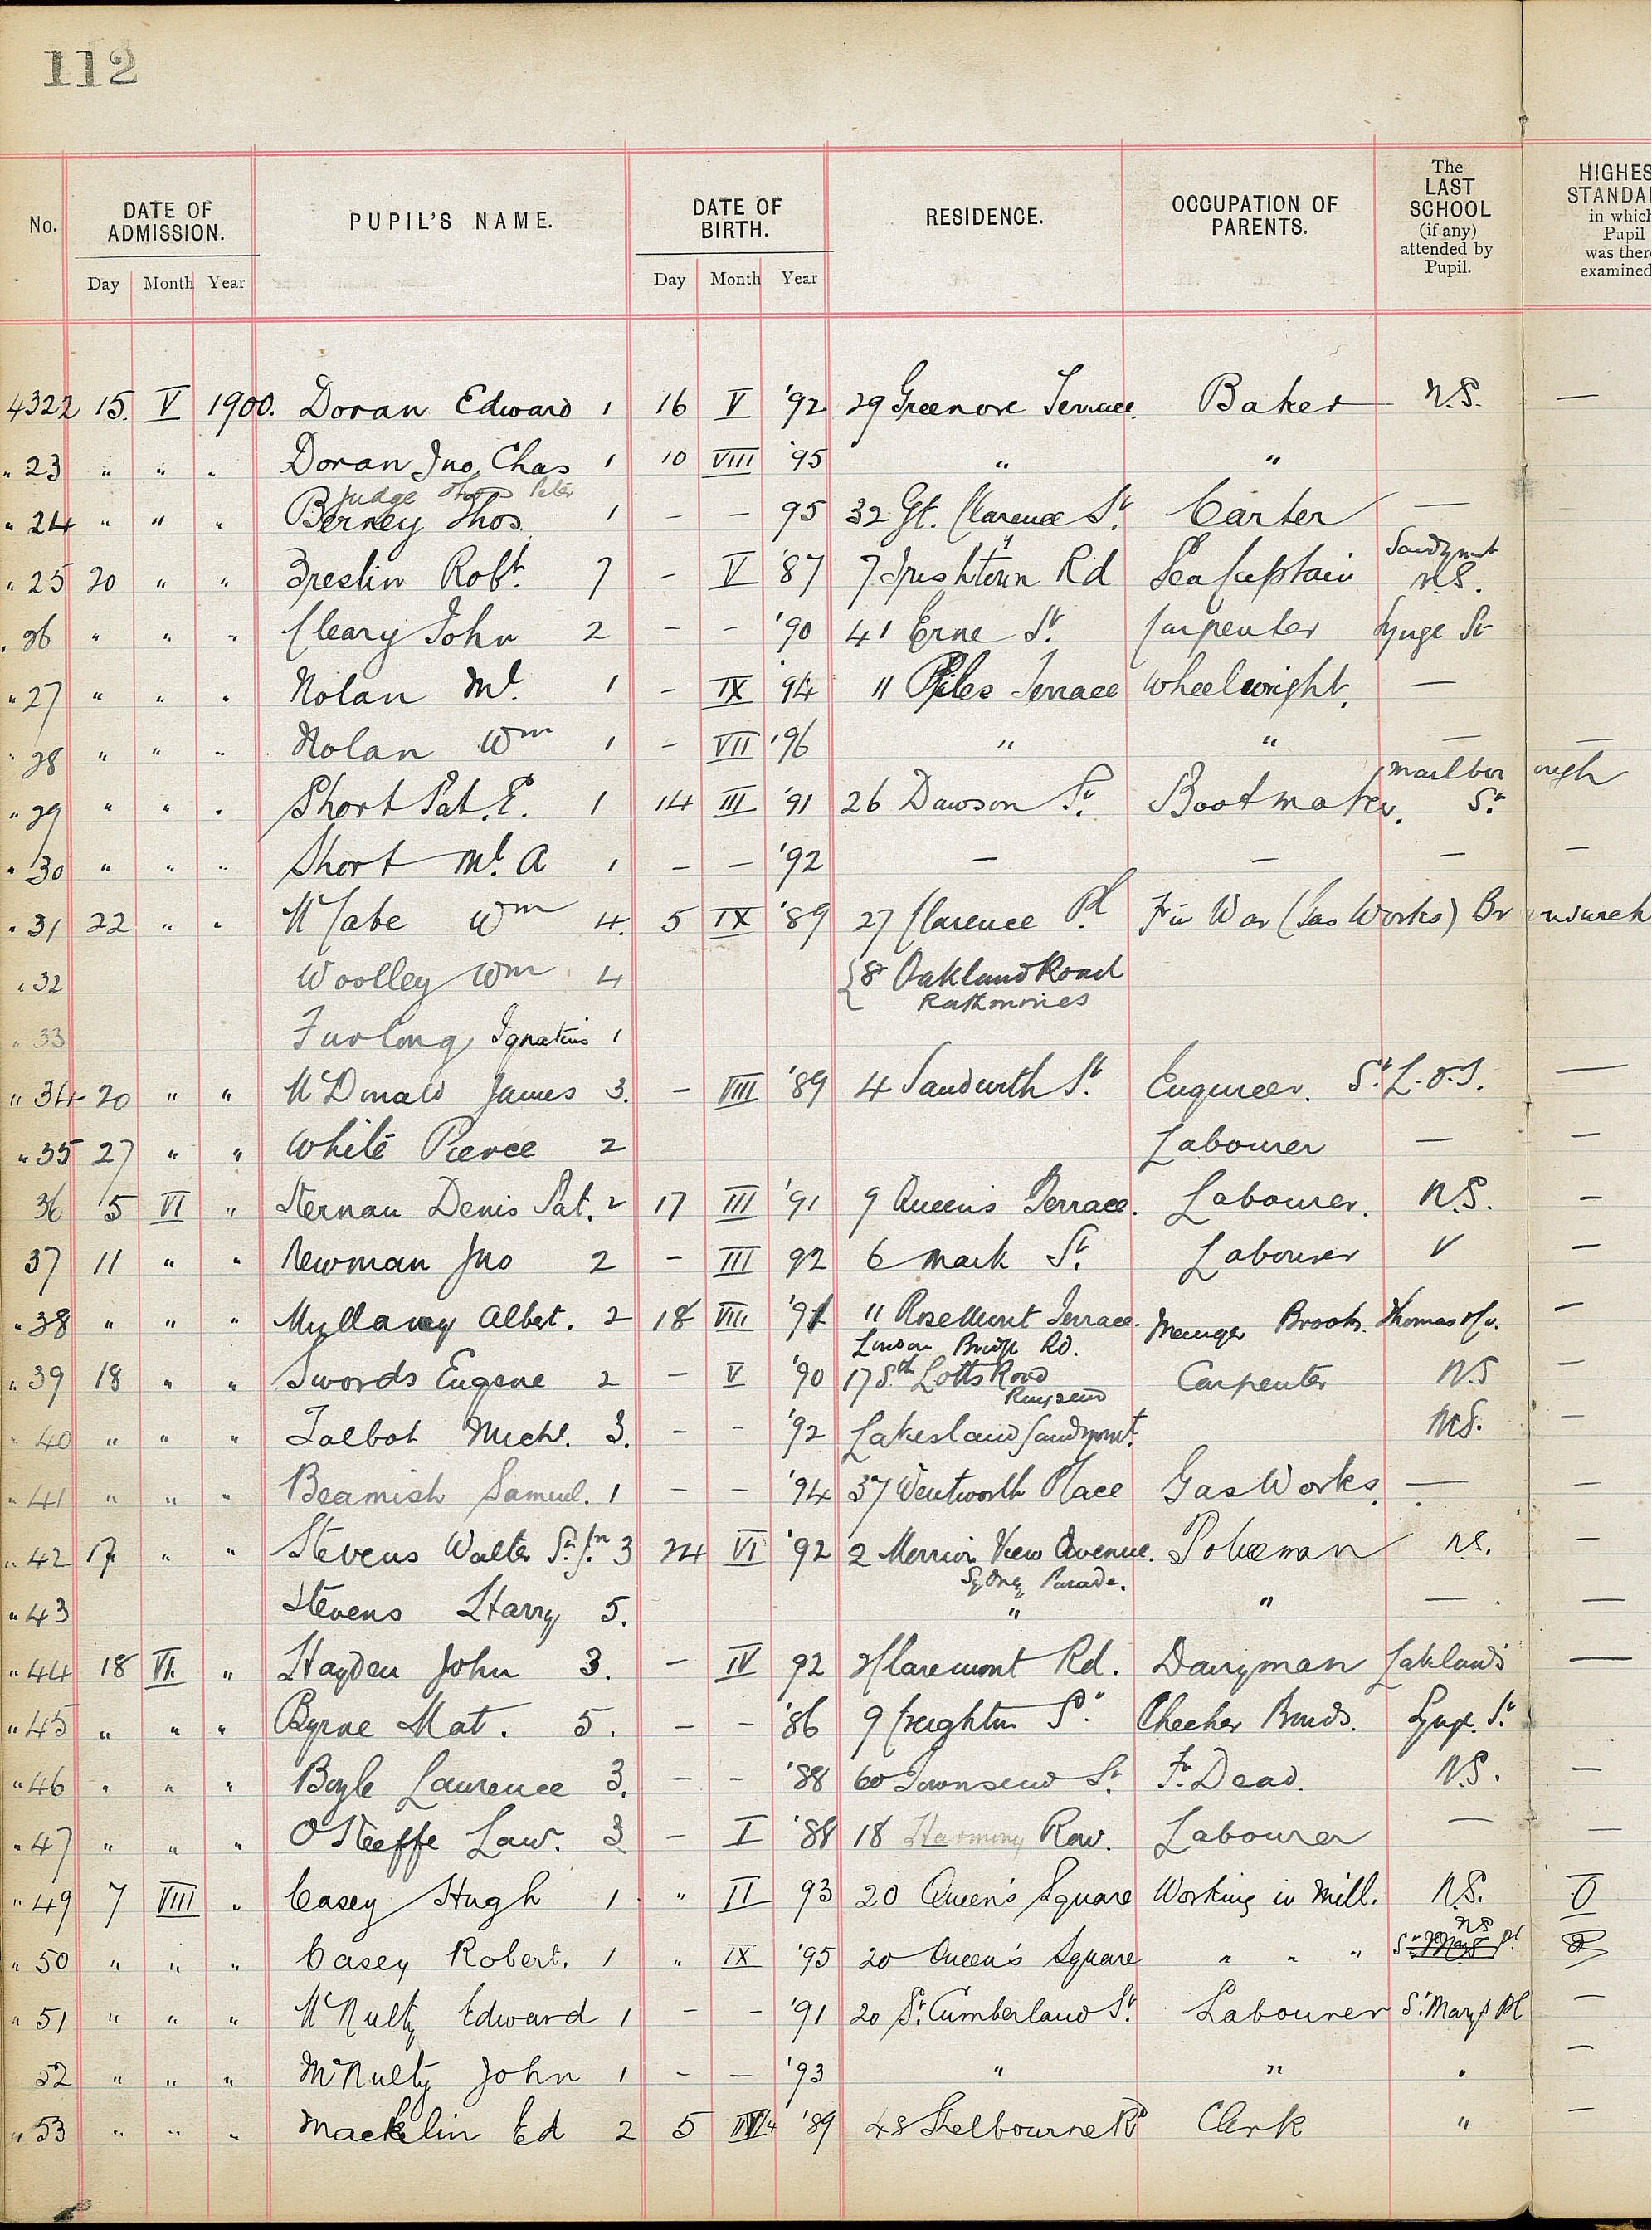 112
No. DATE OF ADMISSION. PUPIL'S NAME. DATE OF BIRTH. RESIDENCE. OCCUPATION OF PARENTS. The LAST SCHOOL (if any) attended by Pupil. HIGHES STANDA in which Pupil was ther examined
Day Month Year Day Month Year
4322 15. V 1900. Doran Edward 1 16 V '92 29 Greenore Terrace. Baker N.S. —
" 23 " " " Doran Jno. Chas 1 10 VIII '95 " "
Judge Thos Peter
" 24 " " " Berney Thos. 1 — — 95 32 Gt. Clarence St. Carter —
Sandymt
" 25 20 " " Breslin Robt. 7 — V '87 7 Irishtown Rd Sea Captain N.S.
" 26 " " " Cleary John 2 — — '90 41 Erne St. Carpenter Synge St
" 27 " " " Nolan Ml. 1 — IX '94 11 Piles Terrace Wheelwright. —
" 28 " " " Nolan Wm 1 — VII '96 " " — —
Marlborough
" 29 " " " Short Pat. E. 1 14 III '91 26 Dawson St. Bootmaker. St.
" 30 " " " Short Ml. A 1 — — '92 — — — —
" 31 22 " " McCabe Wm 4. 5 IX '89 27 Clarence Pl (Gas Works)
" 32 Woolley Wm 4 {8 Oakland Road
Rathmines
" 33 Furlong Ignatius 1
" 34 20 " " McDonald James 3. — VIII '89 4 Sandwith St. Engineer. St. L. O'T. —
" 35 27 " " White Pierce 2 Labourer — —
36 5 VI " Kernan Denis Pat. 2 17 III '91 9 Queen's Terrace. Labourer. N.S. —
37 11 " " Newman Jno 2 — III 92 6 Mark St. Labourer V —
" 38 " " " Mullaney Albert. 2 18 VIII '91 11 Rosemount Terrace. Manager Brooks Thomas & Co. —
London Bridge Rd.
" 39 18 " " Swords Eugene 2 — V '90 17 Sth Lotts Road Carpenter N.S —
Ringsend
" 40 " " " Talbot Michl. 3. — — '92 Lakesland Sandymt. N.S. —
" 41 " " " Beamish Samuel. 1 — — '94 37 Wentworth Place Gas Works. — —
" 42 " " Stevens Walter 3 24 VI '92 2 Merrion View Avenue. Policeman N.S. —
Sydney Parade.
" 43 Stevens Harry 5. " " — —
" 44 18 VI. " Hayden John 3. — IV 92 2 Claremont Rd. Dairyman Lakelands —
" 45 " " " Byrne Mat. 5. — — '86 9 Creighton St. Checker Bonds. Synge St. —
" 46 " " " Boyle Laurence 3. — — '88 60 Townsend St. Fr. Dead. N.S. —
" 47 " " " O'Keeffe Law. 3 — I '88 18 Harmony Row. Labourer — —
" 49 7 VIII " Casey Hugh 1 " II 93 20 Queen's Square Working in Mill. N.S. O
NS
" 50 " " " Casey Robert. 1 " IX '95 20 Queen's Square " " " St. Mary's Pl.
" 51 " " " McNulty Edward 1 — — '91 20 St. Cumberland St. Labourer St. Mary's Pl —
52 " " " McNulty John 1 — — '93 " " " —
" 53 " " " Mackelin Ed 2 5 IV '89 48 Shelbourne Rd Clerk " —